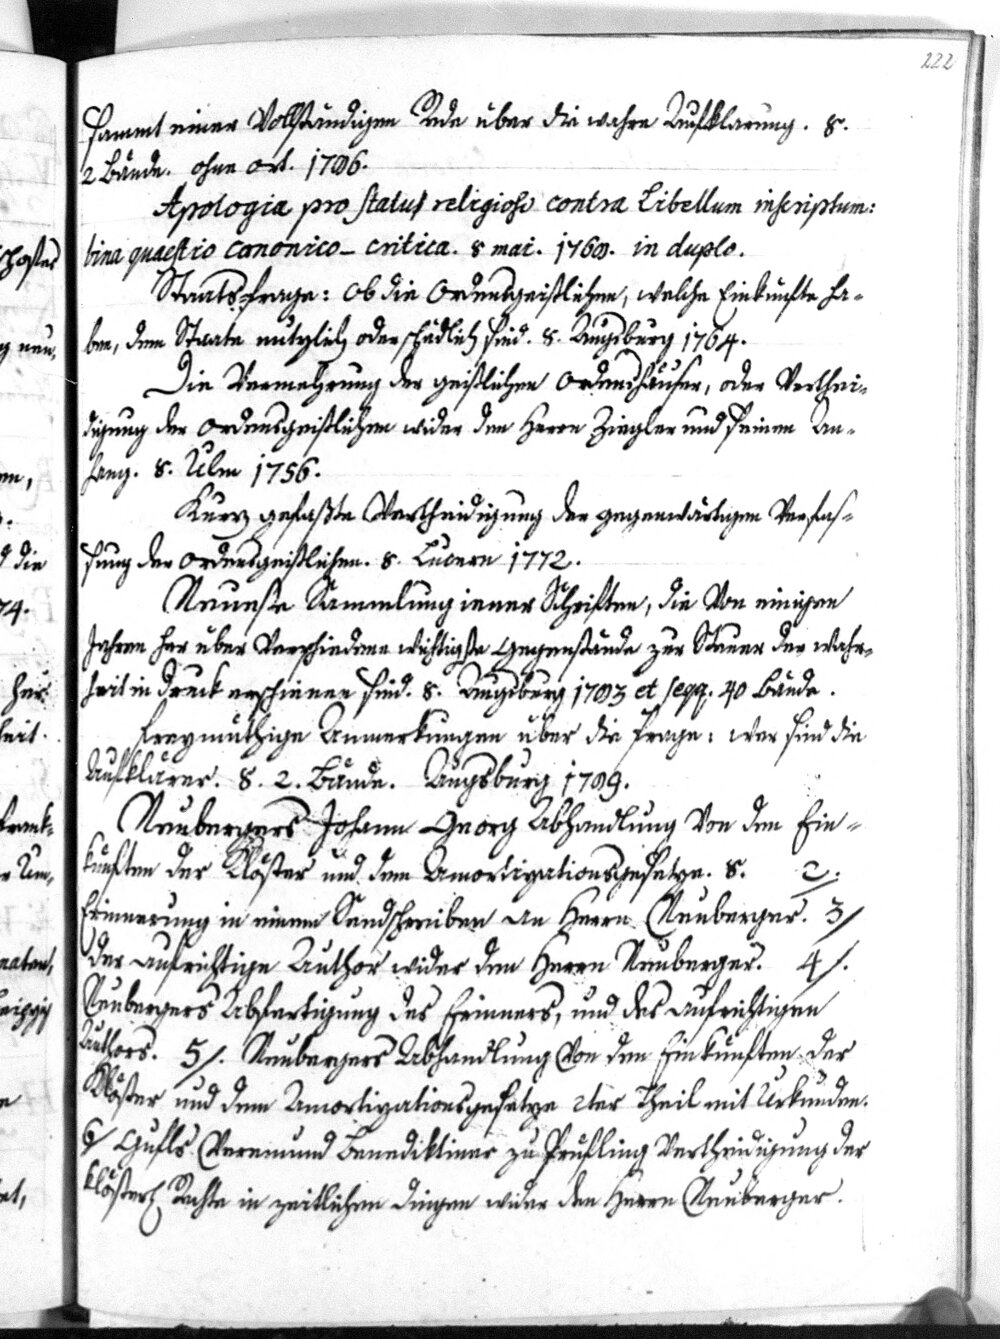 222
sammt einer Vollständigen Rede über die wahre Aufklärung. 8.
2 Bände. ohne Ort. 1786.
Apologia pro statu religioso contra Libellum inscriptum:
bina quaestio canonico-critica. 8 mai. 1768. in duplo.
Staatsfrage: Ob die Ordensgeistlichen, welche Einkünfte ha-
ben, dem Staate nutzlich oder schädlich sind. 8. Augsburg 1764.
Die Vermehrung der geistlichen Ordenshäuser, oder Verthei-
digung der Ordensgeistlichen wider den Herrn Ziegler und seinen An-
hang. 8. Ulm 1756.
Kurz gefaßte Vertheidigung der gegenwärtigen Verfas-
sung der Ordensgeistlichen. 8. Lucern 1772.
Neueste Sammlung iener Schriften, die Von einigen
Jahren her über Verschiedene wichtigste Gegenstände zur Steuer der Wahr-
heit in Druck erschienen sind. 8. Augsburg 1783 et seqq. 40 Bände.
Freymüthige Anmerkungen über die Frage: wer sind die
Aufklärer. 8. 2. Bände. Augsburg 1789.
Neubergers Johann Georg Abhandlung Von den Ein-
künften der Klöster und dem Amortizationsgesetze. 8. 2/.
Erinnerung in einem Sendschreiben an Herrn Neuberger. 3/
Der aufrichtige Author wider den Herrn Neuberger. 4/.
Neubergers Abfertigung des Erinners, und des aufrichtigen
Authors. 5/. Neubergers Abhandlung Von den Einkünften der
Klöster und dem Amortizationsgesetze 2ter Theil mit Urkunden.
6/ Gufls Veremund Benediktiner zu Prüfling Vertheidigung der
klösterl. Rechte in zeitlichen Dingen wider den Herrn Neuberger.